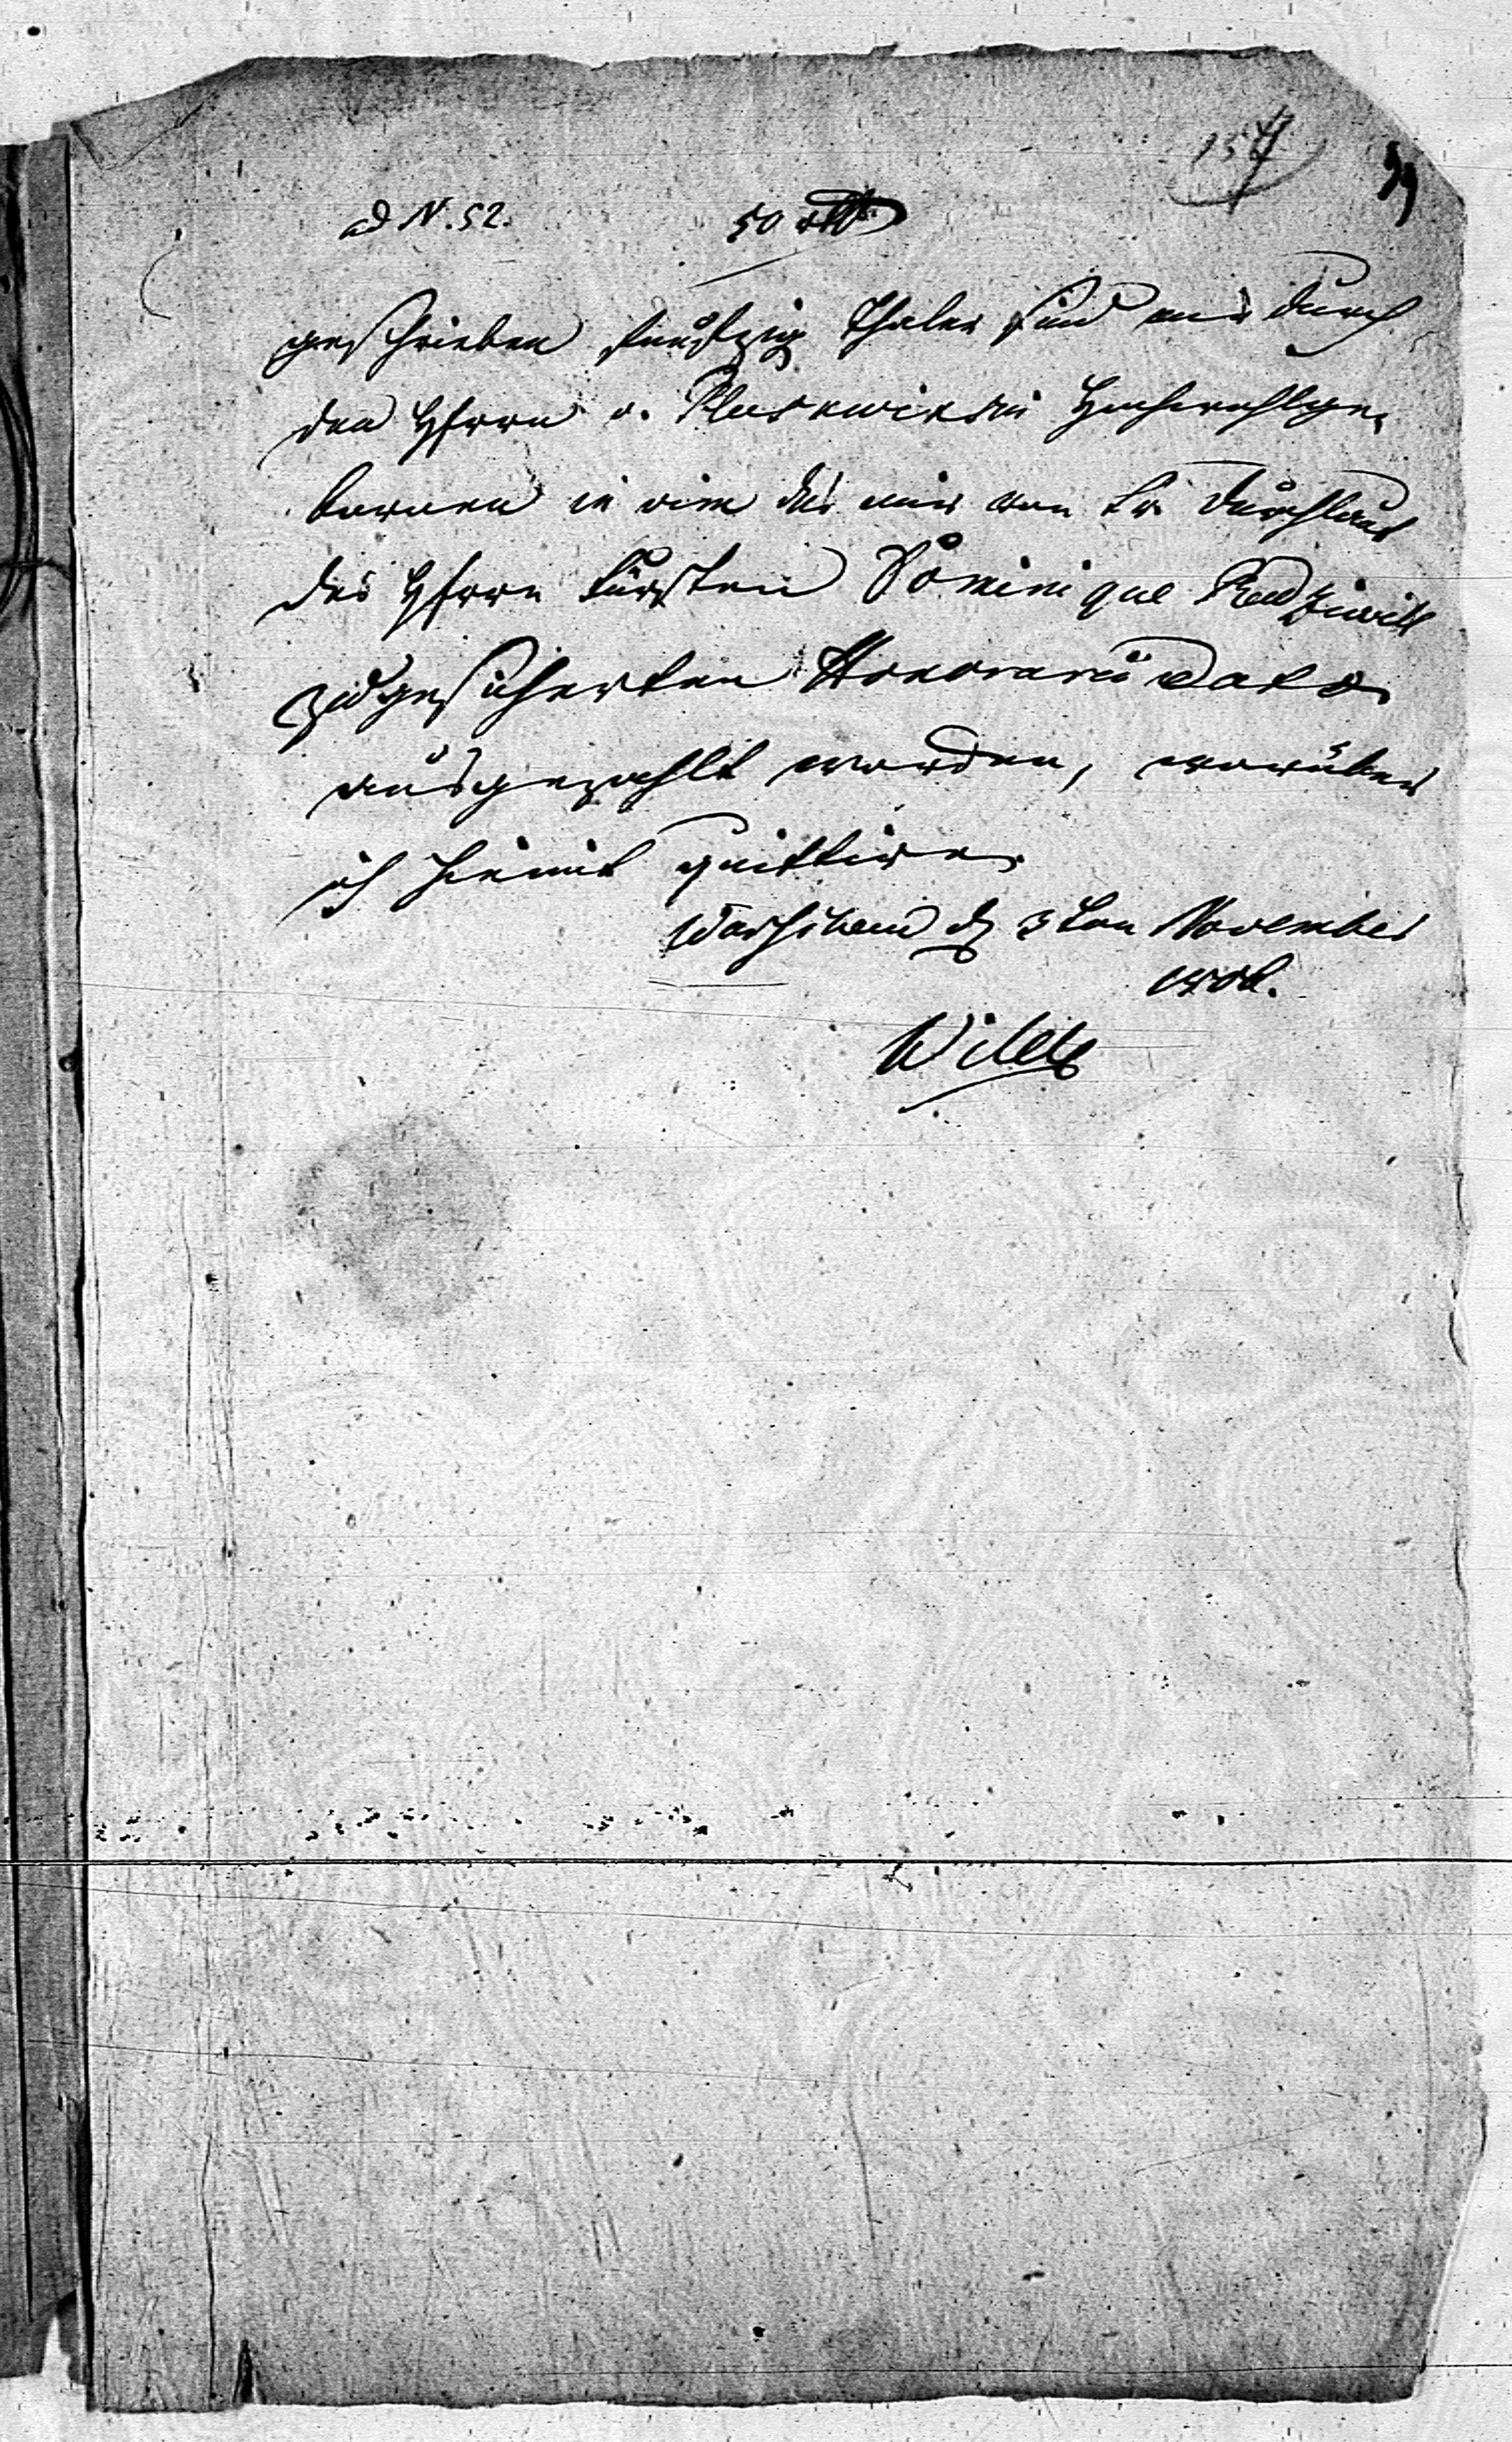 157
39
ad N. 52. 50 rtl
geschrieben funfzig Thaler sind mir durch
den Herrn v. Pluskwinski Hochwohlge-
bornen in vim des mir von Sr Durchlaucht
des Herrn Fürsten Dominique Radziwill
zugesicherten Honorarii dato
ausgezahlt worden, worüber
ich hiemit quittire.
Warschau d 3ten November
Wilde